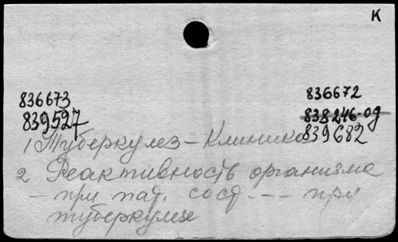 К
836673
839527
836672
838246-од
839682
1 Туберкулез - Клиника
2 Реактивность организма
- при пат. сост. --- при
туберкулезе